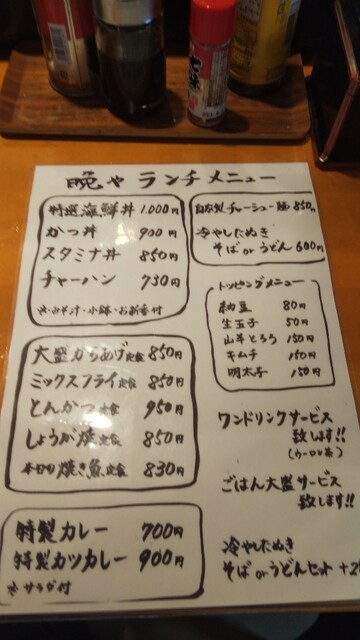 晩や ランチメニュー
特選海鮮丼 1.000円
かつ丼 900円
スタミナ丼 850円
チャーハン 730円
※みそ汁・小鉢・お新香付
大盛からあげ定食 850円
ミックスフライ定食 850円
とんかつ定食 950円
しょうが焼定食 850円
本日の焼き魚定食 830円
特製カレー 700円
特製カツカレー 900円
※サラダ付
自家製チャーシュー麺 850円
冷やしたぬき
そば or うどん 600円
トッピングメニュー
納豆 80円
生玉子 50円
山芋とろろ 150円
キムチ 150円
明太子 150円
ワンドリンクサービス
致します!!
(ウーロン茶)
ごはん大盛サービス
致します!!
冷やしたぬき
そば or うどんセット